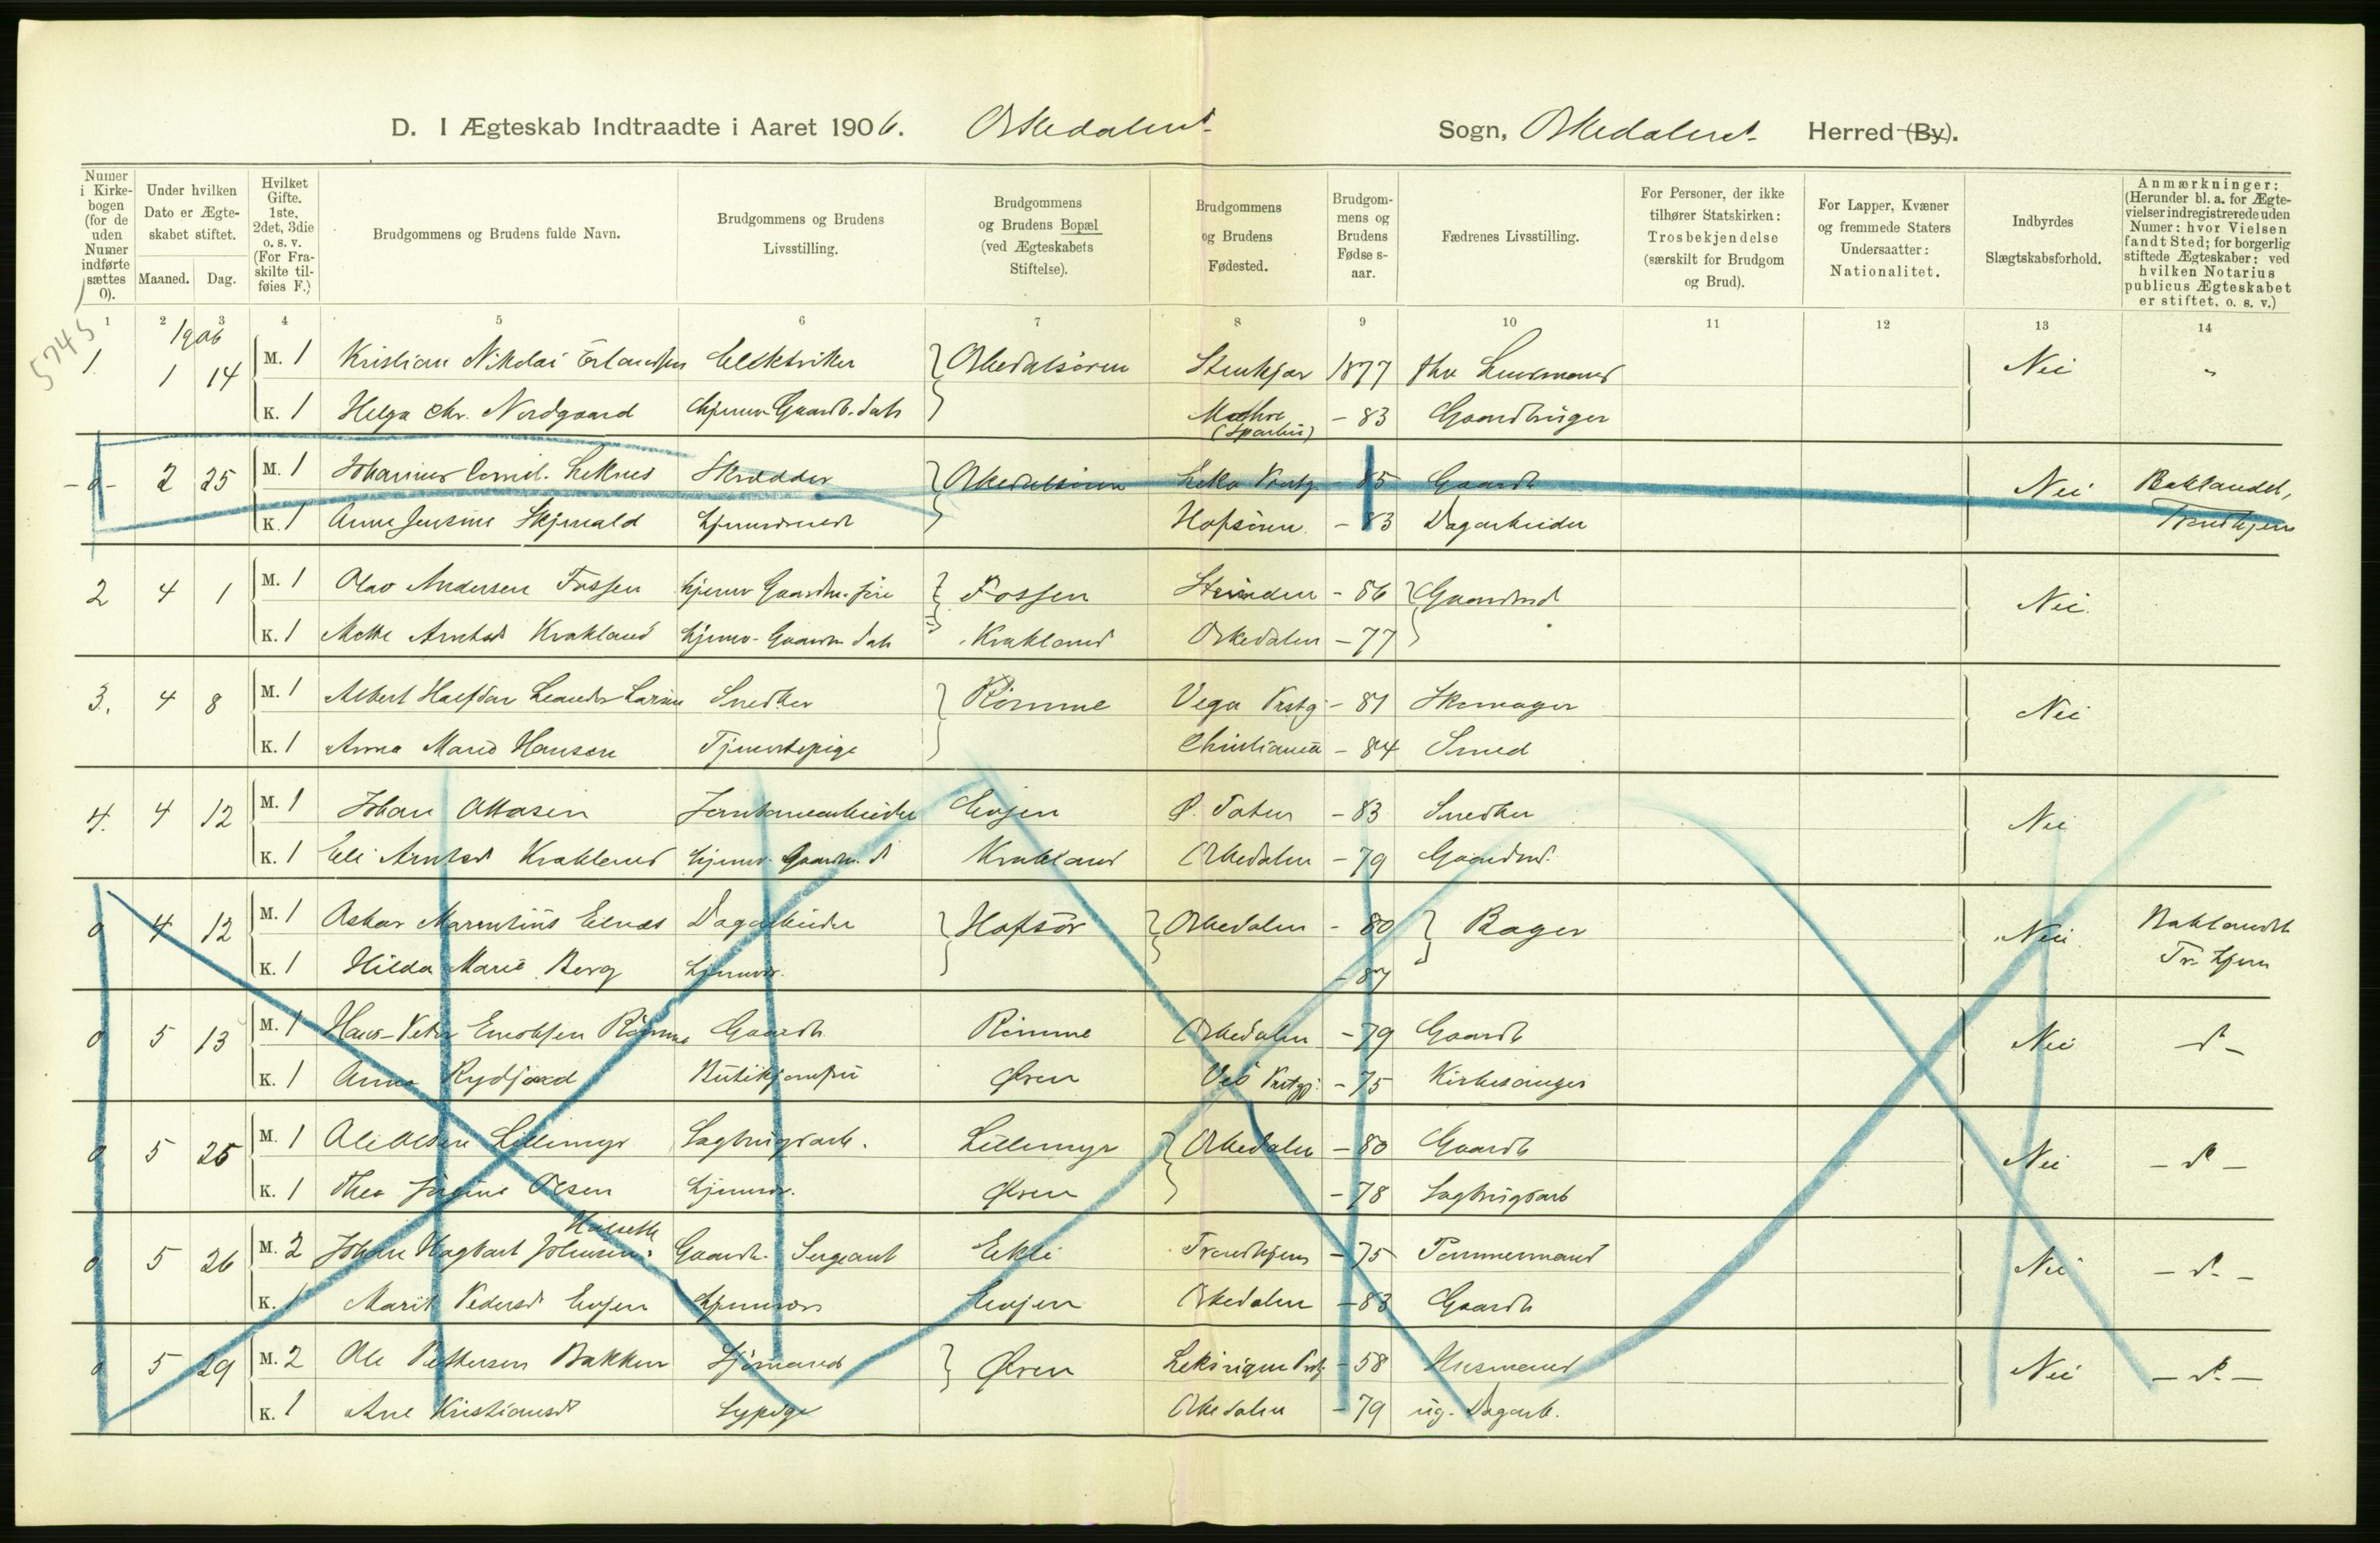 D. I Ægteskab Indtraadte i Aaret 1906. Orkedalens Sogn, Orkedalens Herred (By).
Numer i Kirkebogen (for de uden Numer indførte sættes 0).
Under hvilken Dato er Ægteskabet stiftet.
Maaned. Dag.
Hvilket Gifte. 1ste, 2det, 3die o. s. v. (For Fraskilte tilføies F.)
Brudgommens og Brudens fulde Navn.
Brudgommens og Brudens Livsstilling.
Brudgommens og Brudens Bopæl (ved Ægteskabets Stiftelse).
Brudgommens og Brudens Fødested.
Brudgommens og Brudens Fødselsaar.
Fædrenes Livsstilling.
For Personer, der ikke tilhører Statskirken: Trosbekjendelse (særskilt for Brudgom og Brud).
For Lapper, Kvæner og fremmede Staters Undersaatter: Nationalitet.
Indbyrdes Slægtskabsforhold.
Anmærkninger: (Herunder bl. a. for Ægtevielser indregistrerede uden Numer: hvor Vielsen fandt Sted; for borgerlig stiftede Ægteskaber: ved hvilken Notarius publicus Ægteskabet er stiftet, o. s. v.)
1 2 3 4 5 6 7 8 9 10 11 12 13 14
5745
1906
1 1 14 M. 1 Kristian Nikolai Erlandsen Elektriker } Orkedalsøren Stenkjær 1877 fhv Lensmand Nei "
K. 1 Helga Chr. Nordgaard hjemv. Gaardb. datt. Mæhre (Sparbu) - 83 Gaardbruger
- 0 - 2 25 M. 1 Johannes Cornel. Leknes Skrædder } Orkedalsøren Leka Prstg. - 85 Gaardb. Nei Baklandet,
K. 1 Anne Jensine Skjenald hjemmev. Hofsøren - 83 Dagarbeider Trondhjem
2 4 1 M. 1 Olav Andersen Fossen hjemv. Gaardm. søn } Fossen Strinden - 86 } Gaardmd Nei
K. 1 Mette Arntsd. Krakland hjemv. Gaardm. datt. Krakland Orkedalen - 77
3. 4 8 M. 1 Albert Halfdan Leander Larsen Snedker } Rømme Vega Prstg. - 81 Skomager Nei
K. 1 Anna Marie Hansen Tjenestepige Christiania - 84 Smed
4. 4 12 M. 1 Johan Ottosen Jernbanearbeider Evjen Ø. Toten - 83 Snedker Nei
K. 1 Eli Arntsd. Krakland hjemv. Gaardm. d. Krakland Orkedalen - 79 Gaardmd.
0 4 12 M. 1 Oskar Marentius Elnæs Dagarbeider } Hofsør } Orkedalen - 80 } Bager Nei Baklandet
K. 1 Hilda Marie Berg hjemmev. - 87 Tr. hjem
0 5 13 M. 1 Hans-Peter Rømme Gaardb. Rømme Orkedalen - 79 Gaardb. Nei - d. -
K. 1 Anna Rydjord Butikjomfru Øren Veø Prstgj. - 75 Kirkesanger
0 5 25 M. 1 Ole Olsen Lillemyr Sagbrugsarb. Lillemyr } Orkedalen - 80 Gaardb. Nei - d. -
K. 1 Thea Jørgine Olsen hjemmev. Øren - 78 Sagbrugsarb
0 5 26 M. 2 Johan Hagbart Johnsen Gaardb. Sergeant Ekli Trondhjem - 75 Tømmermand Nei - d. -
K. 1 Marit Pedersd. Evjen hjemmev. Evjen Orkedalen - 83 Gaardb.
0 5 29 M. 2 Ole Pettersen Bakken Sjømand } Øren Leksvigen Prstg. - 58 Husmand Nei - d. -
K. 1 Ane Kristiansd. Sypige Orkedalen - 79 ug. Dagarb.